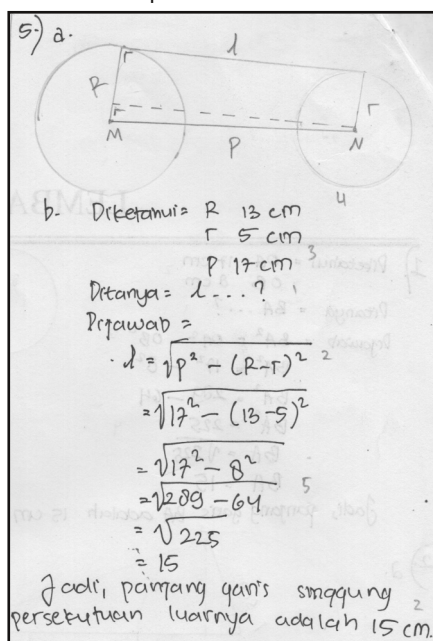 5.) a.
l
R
r
M
P
N
4
b. Diketahui = R 13 cm
r 5 cm
P 17 cm 3
Ditanya = l ... ?
Dijawab =
l = √P² - (R-r)² 2
= √17² - (13-5)²
= √17² - 8²
= √289 - 64 5
= √225
= 15
Jadi, panjang garis singgung
persekutuan luarnya adalah 15 cm 2